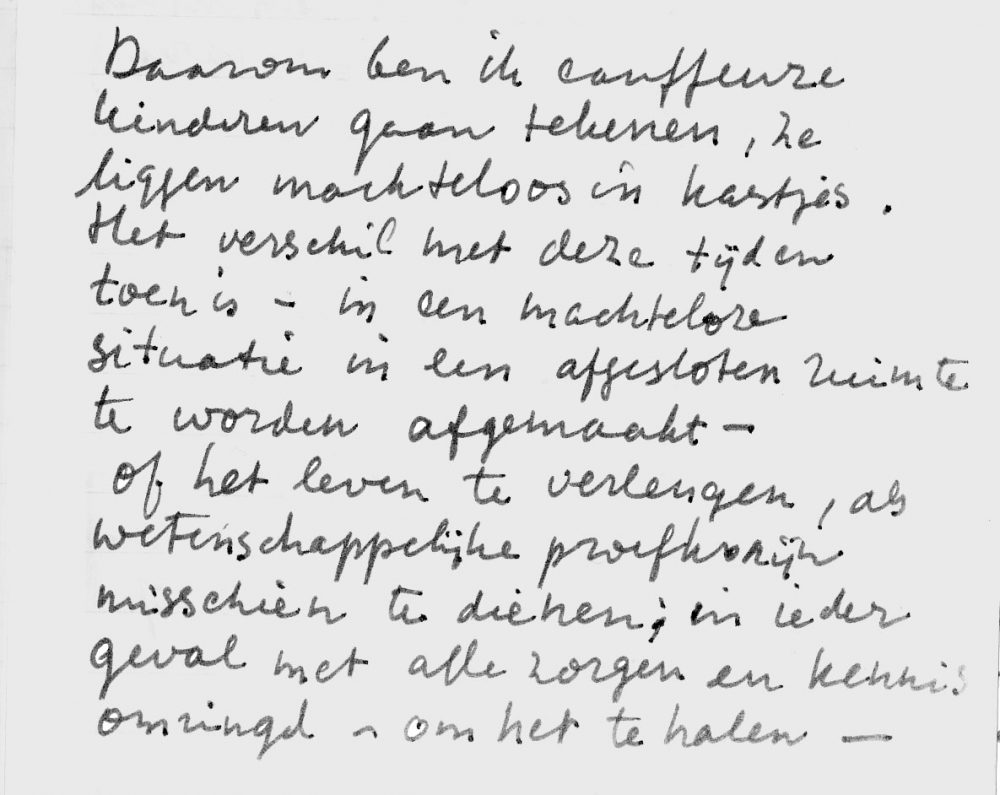 Daarom ben ik couffeuze
kinderen gaan tekenen, ze
liggen machteloos in kastjes.
Het verschil met deze tijden
toen is – in een machteloze
situatie in een afgesloten ruimte
te worden afgemaakt –
of het leven te verlengen, als
wetenschappelijke proefkonijn
misschien te dienen; in ieder
geval met alle zorgen en kennis
omringd – om het te halen –